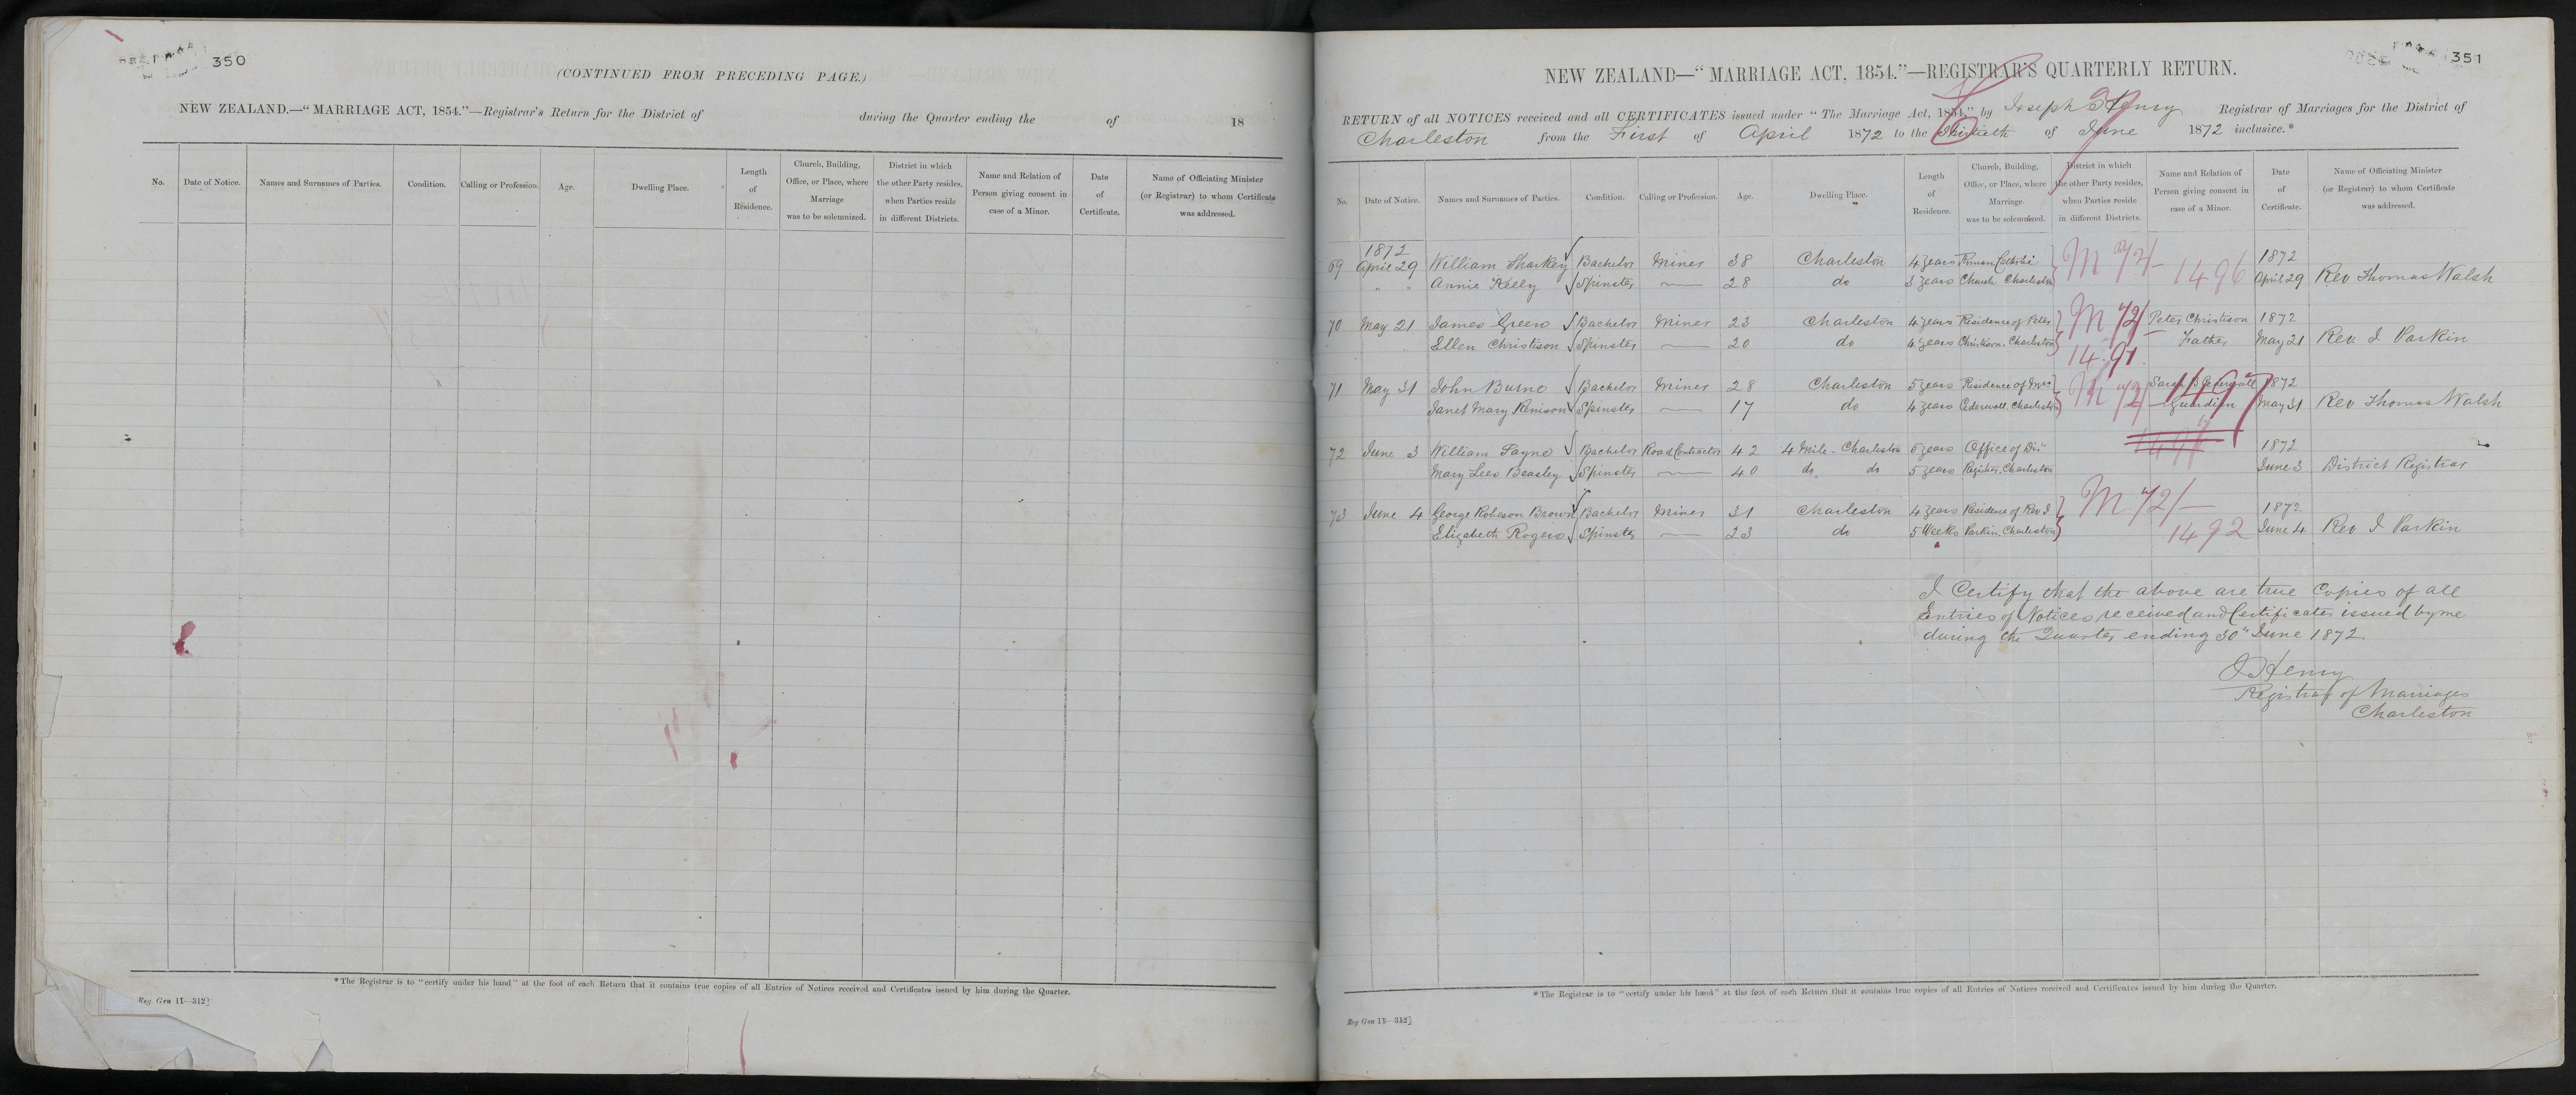 350
(CONTINUED FROM PRECEDING PAGE.)
NEW ZEALAND.—"MARRIAGE ACT, 1854."—Registrar's Return for the District of during the Quarter ending the of 18
No. Date of Notice. Names and Surnames of Parties. Condition. Calling or Profession. Age. Dwelling Place. Length of Residence. Church, Building, Office, or Place, where Marriage was to be solemnized. District in which the other Party resides, when Parties reside in different Districts. Name and Relation of Person giving consent in case of a Minor. Date of Certificate. Name of Officiating Minister (or Registrar) to whom Certificate was addressed.
*The Registrar is to "certify under his hand" at the foot of each Return that it contains true copies of all Entries of Notices received and Certificates issued by him during the Quarter.
Reg Gen 11—312]
351
NEW ZEALAND—"MARRIAGE ACT, 1854."—REGISTRAR'S QUARTERLY RETURN.
RETURN of all NOTICES received and all CERTIFICATES issued under "The Marriage Act, 1854," by Joseph Henry Registrar of Marriages for the District of
Charleston from the First of April 1872 to the Thirtieth of June 1872 inclusive.*
No. Date of Notice. Names and Surnames of Parties. Condition. Calling or Profession. Age. Dwelling Place. Length of Residence. Church, Building, Office, or Place, where Marriage was to be solemnized. District in which the other Party resides, when Parties reside in different Districts. Name and Relation of Person giving consent in case of a Minor. Date of Certificate. Name of Officiating Minister (or Registrar) to whom Certificate was addressed.
1872 1872
69 April 29 William Sharkey Bachelor Miner 38 Charleston 4 years Roman Catholic M 72/ 1496
" " Annie Kelly Spinster — 28 do 3 years Church Charleston April 29 Rev Thomas Walsh
70 May 21 James Green Bachelor Miner 23 Charleston 4 years Residence of Peter M 72/ Peter Christison 1872
Ellen Christison Spinster — 20 do 4 years Christison. Charleston 1491 Father May 21 Rev. J Parkin
71 May 31 John Burne Bachelor Miner 28 Charleston 5 years Residence of Mrs M 72/ 1497 1872
Janet Mary Renison Spinster — 17 do 4 years Charleston Guardian May 31 Rev Thomas Walsh
72 June 3 William Payne Bachelor Road Contractor 42 4 Mile - Charleston 5 years Office of Dis" 1872
Mary Lees Beasley Spinster — 40 do do 5 years Register, Charleston June 3 District Registrar
73 June 4 George Robeson Brown Bachelor Miner 31 Charleston 4 years Residence of Rev J. M 72/— 1872
Elizabeth Rogers Spinster — 23 do 5 Weeks Parkin. Charleston 1492 June 4 Rev J Parkin
I Certify that the above are true Copies of all
Entries of Notices received and Certificates issued by me
during the Quarter ending 30" June 1872.
J Henry
Registrar of Marriages
Charleston
*The Registrar is to "certify under his hand" at the foot of each Return that it contains true copies of all Entries of Notices received and Certificates issued by him during the Quarter.
Reg Gen 11—312]